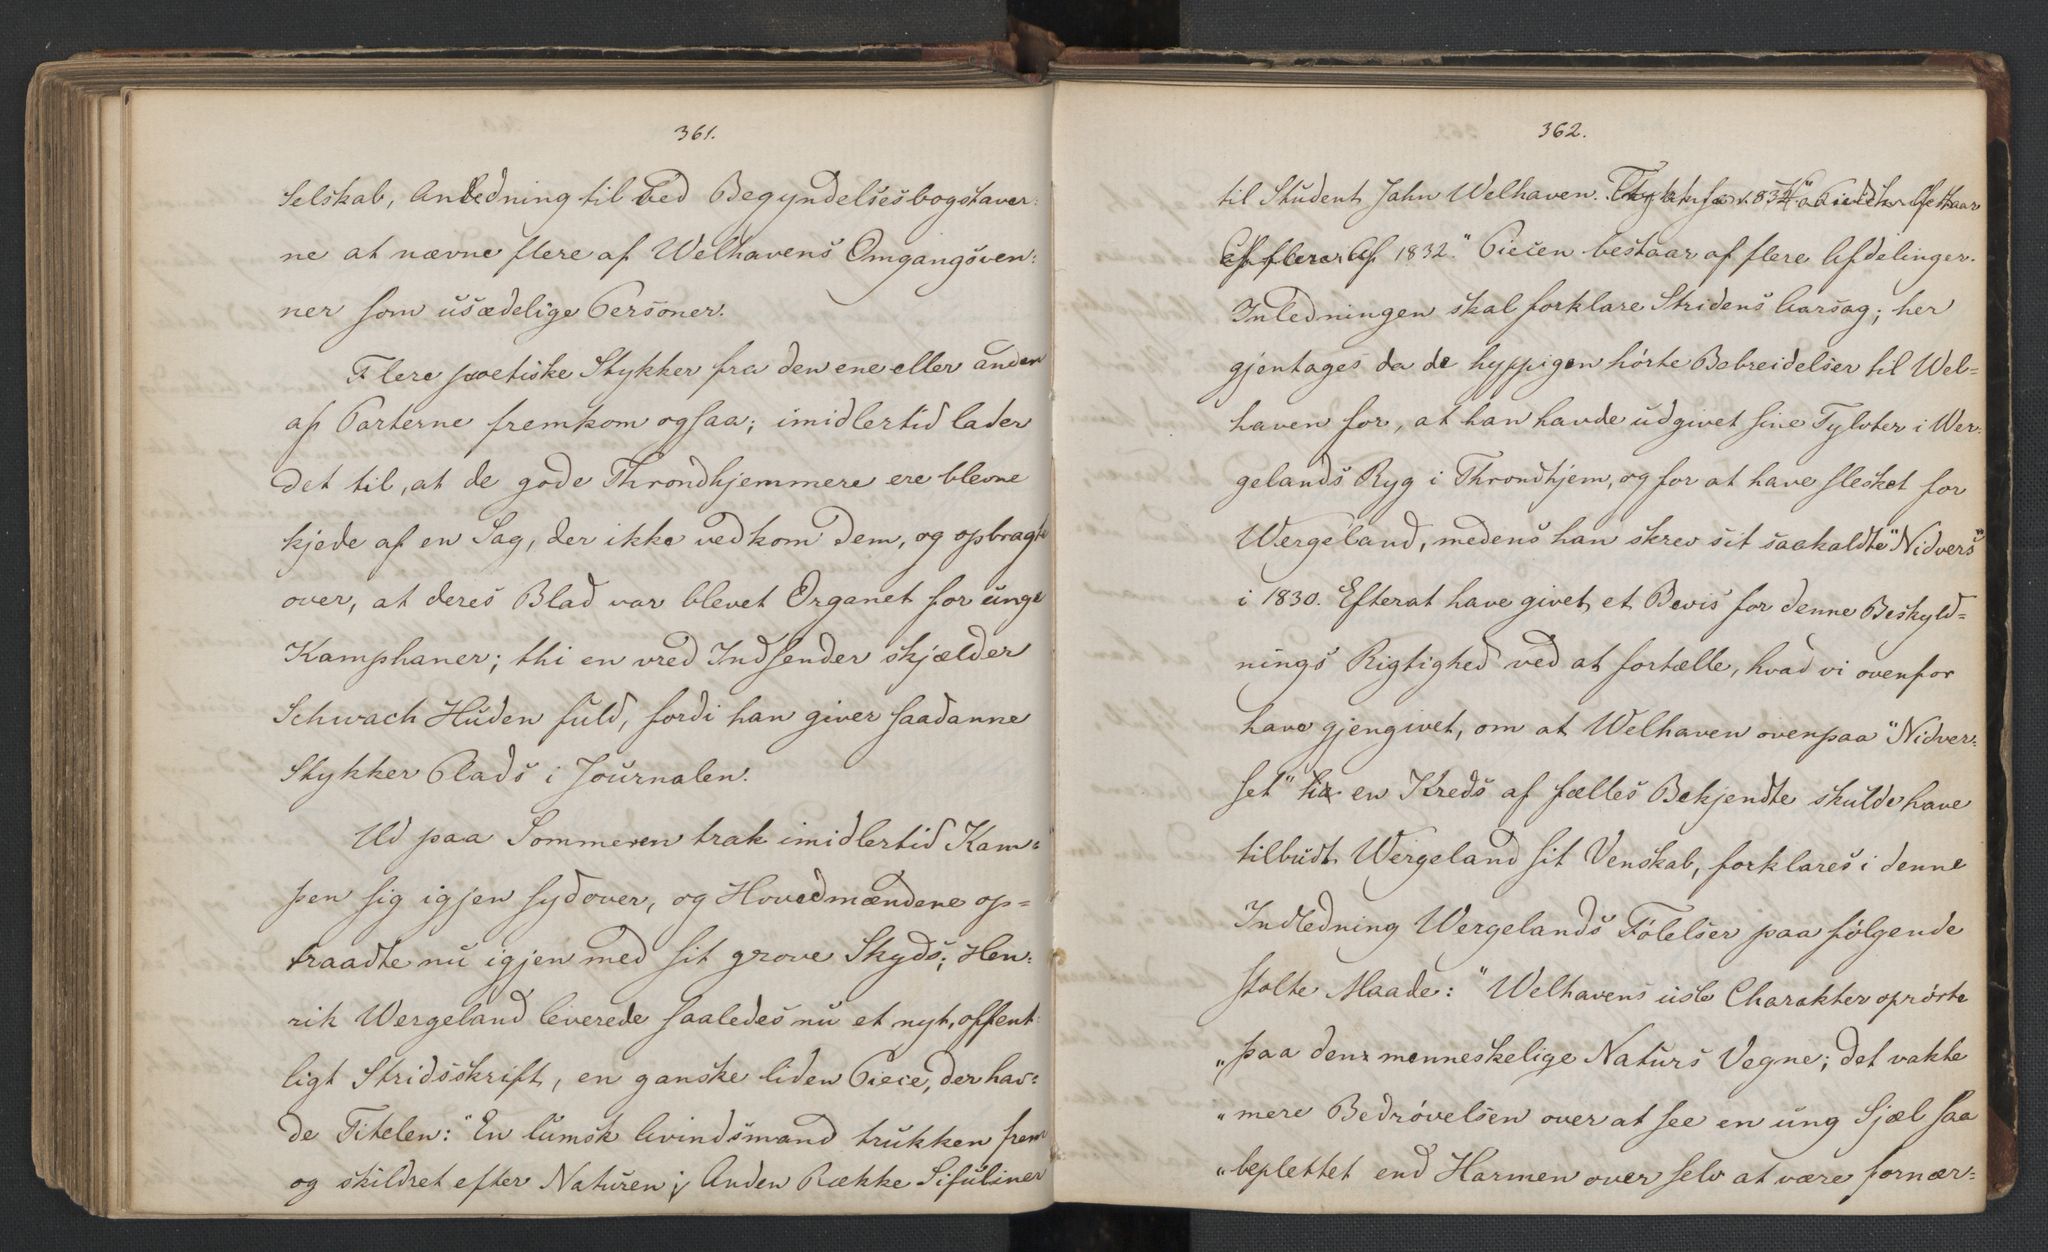 361.
Selskab, Anledning til ved Begyndelsesbogstaver-
ne at nævne flere af Welhavens Omgangsven-
ner som usædelige Personer.
Flere poetiske Stykker fra den ene eller anden
af Parterne fremkom ogsaa; imidlertid lader
det til, at de gode Throndhjemmere ere blevne
kjede af en Sag, der ikke vedkom dem, og opbragte
over, at deres Blad var blevet Organet for unge
Kamphaner; thi en vred Indsender skjælder
Schwach Huden fuld, fordi han giver saadanne
Stykker Plads i Journalen.
Ud paa Sommeren trak imidlertid Kam-
pen sig igjen sydover, og Hovedmændene op-
traadte nu igjen med sit grove Skyds; Hen-
rik Wergeland leverede saaledes nu et nyt, offent-
ligt Stridsskrift, en ganske liden Piece, der hav-
de Titelen: "En lumsk Avindsmand trukken frem
og skildret efter Naturen i Anden Række Sifuliner
362.
til Student Jahn Welhaven.
Af 1832." Piecen bestaar af flere Afdelinger.
Inledningen skal forklare Stridens Aarsag; her
gjentages da de hyppigen hørte Bebreidelser til Wel-
haven for, at han havde udgivet sine Tylvter i Wer-
gelands Ryg i Throndhjem, og for at have slesket for
Wergeland, medens han skrev sit saakaldte "Nidvers"
i 1830. Efterat have givet et Bevis for denne Beskyld-
nings Rigtighed ved at fortælle, hvad vi ovenfor
have gjengivet, om at Welhaven ovenpaa "Nidver-
set" i en Kreds af fælles Bekjendte skulde have
tilbudt Wergeland sit Venskab, forklares i denne
Indledning Wergelands Følelser paa følgende
stolte Maade: "Welhavens usle Charakter oprørte
"paa den menneskelige Naturs Vegne; det vakte
"mere Bedrøvelsen over at see en ung Sjæl saa
"beplettet end Harmen over selv at være fornær-